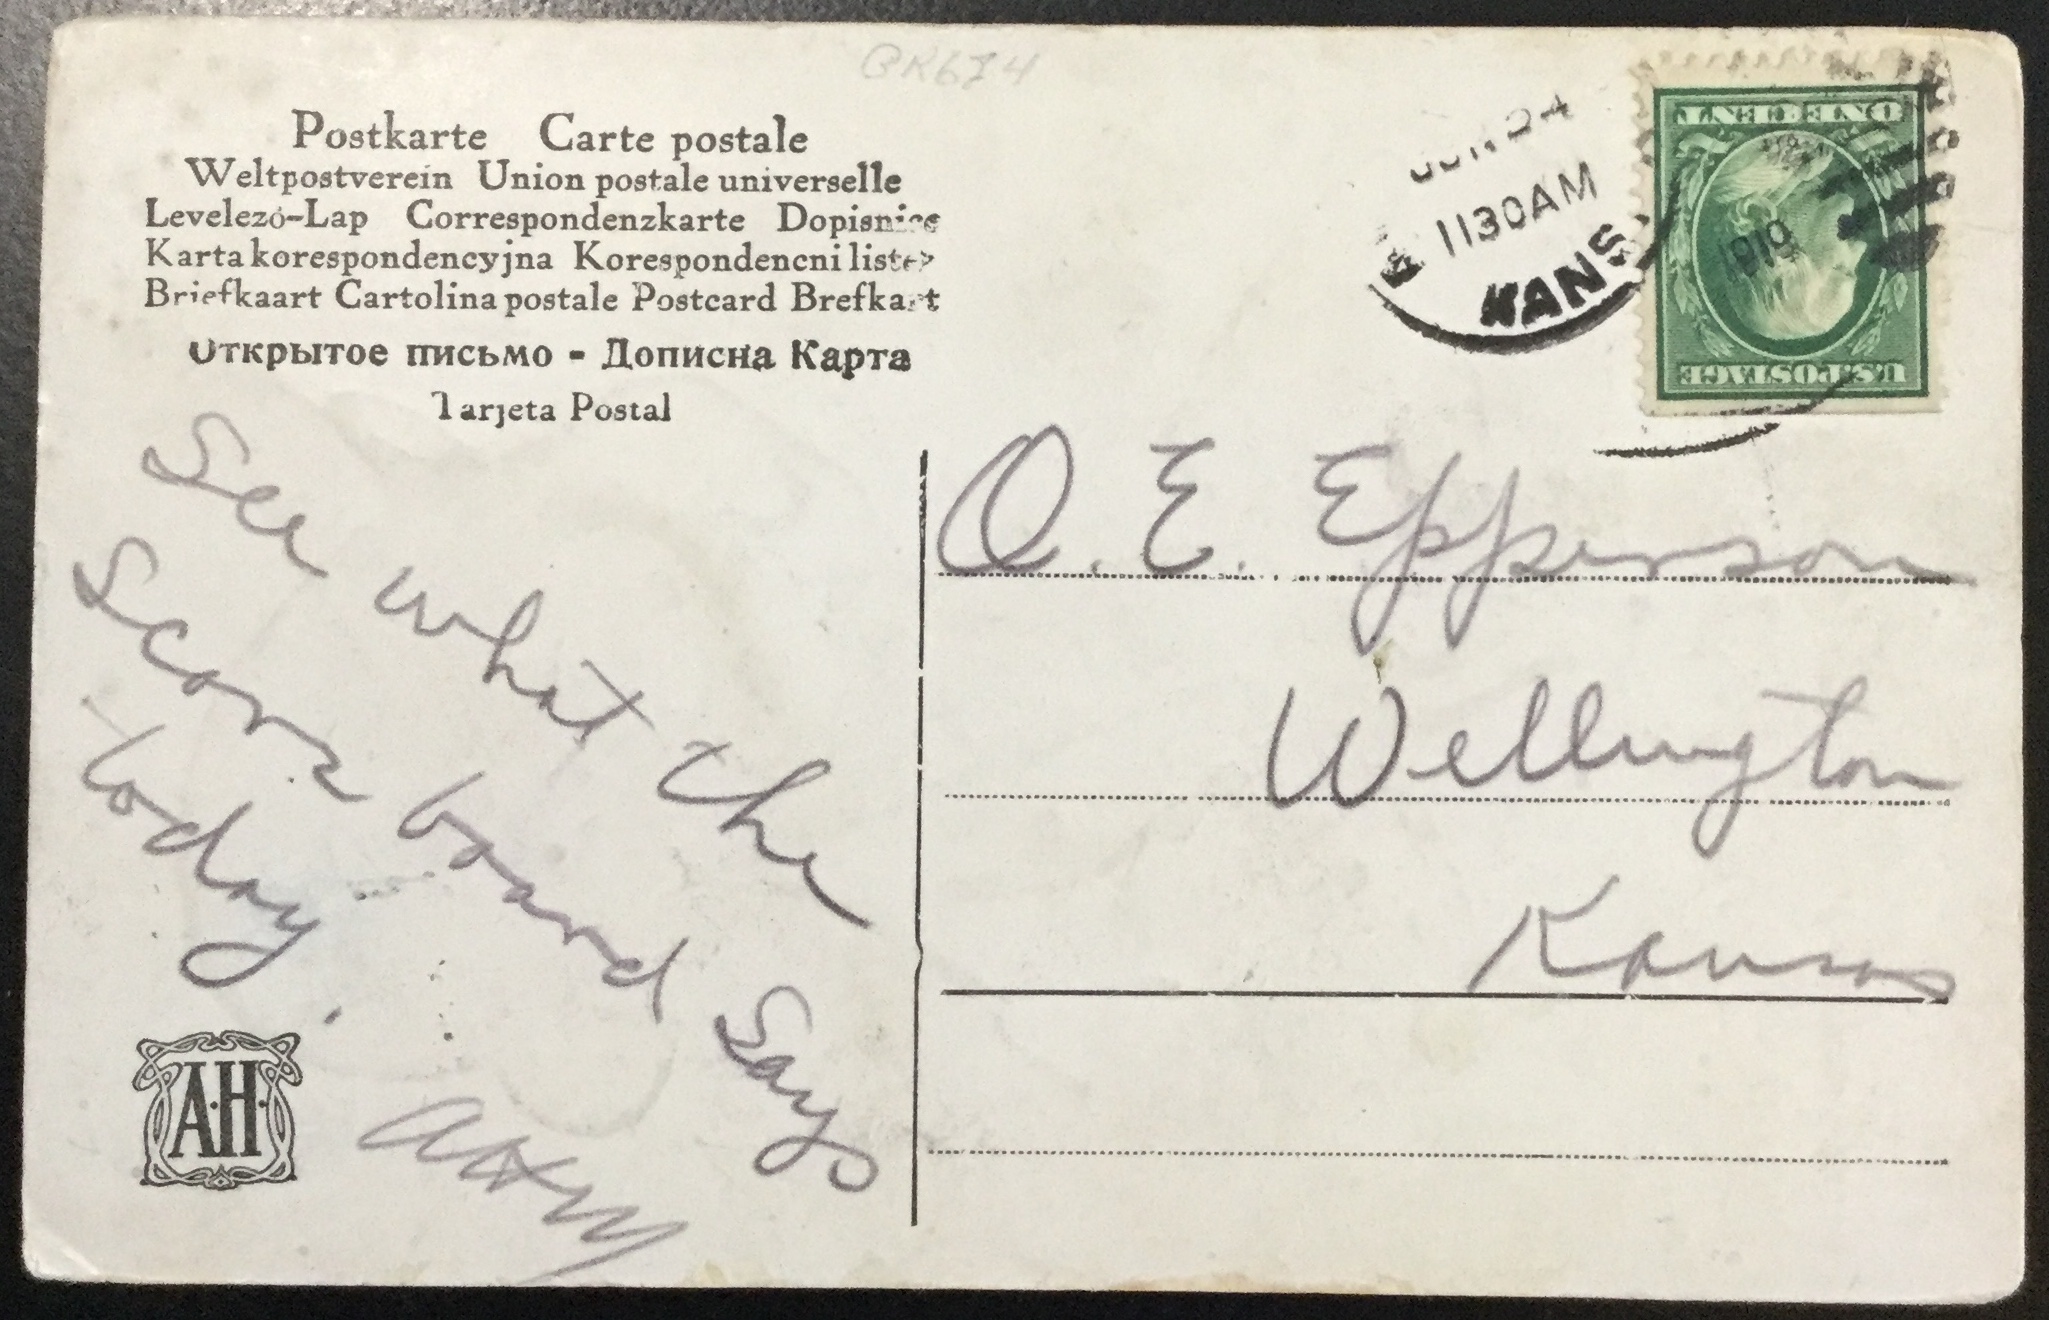 BR674
Postkarte Carte postale
Weltpostverein Union postale universelle
Levelezó-Lap Correspondenzkarte Dopisnice
Karta korespondencyjna Korespondencni listek
Briefkaart Cartolina postale Postcard Brefkart
Открытое письмо - Дописна Карта
Tarjeta Postal
JUN 24
1130AM
KANS
1919
ONE CENT
U.S. POSTAGE
See what the
Score board Says
today.
A.H.
O. E. Epperson
Wellington
Kansas